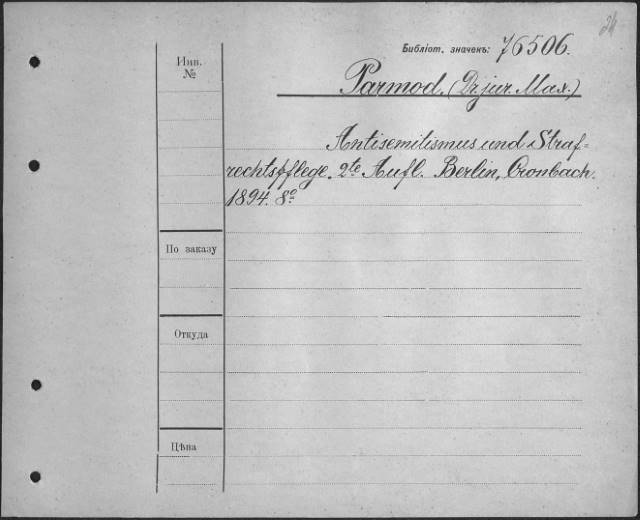 24
Библіот. значекъ: 76506.
Инв.
№
Parmod. (Dr jur. Max.)
Antisemitismus und Straf=
rechtspflege. 2te Aufl. Berlin, Cronbach.
1894. 8º
По заказу
Откуда
Цѣна